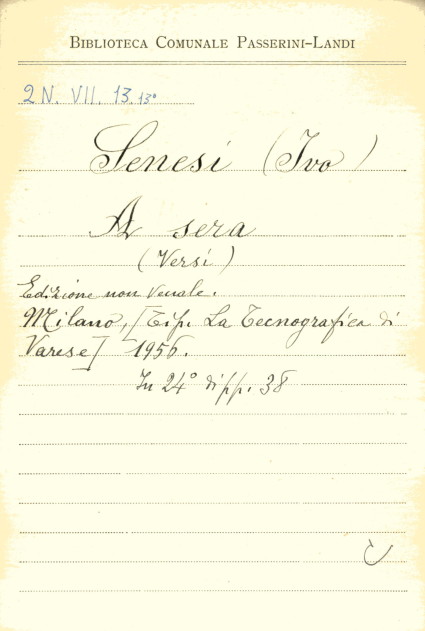 BIBLIOTECA COMUNALE PASSERINI-LANDI
2 N. VII. 13. 13°
Senesi (Ivo)
A sera
(Versi)
Edizione non venale.
Milano, [Tip. La Tecnografica di
Varese] 1956.
In 24° di pp. 38